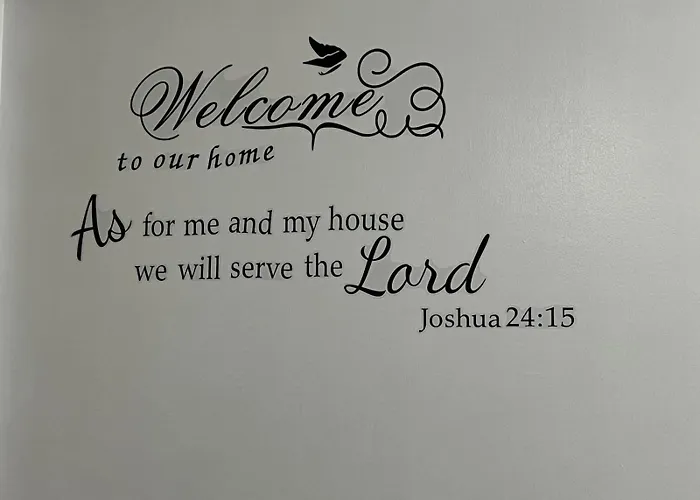 Welcome
to our home
As for me and my house
we will serve the Lord
Joshua 24:15